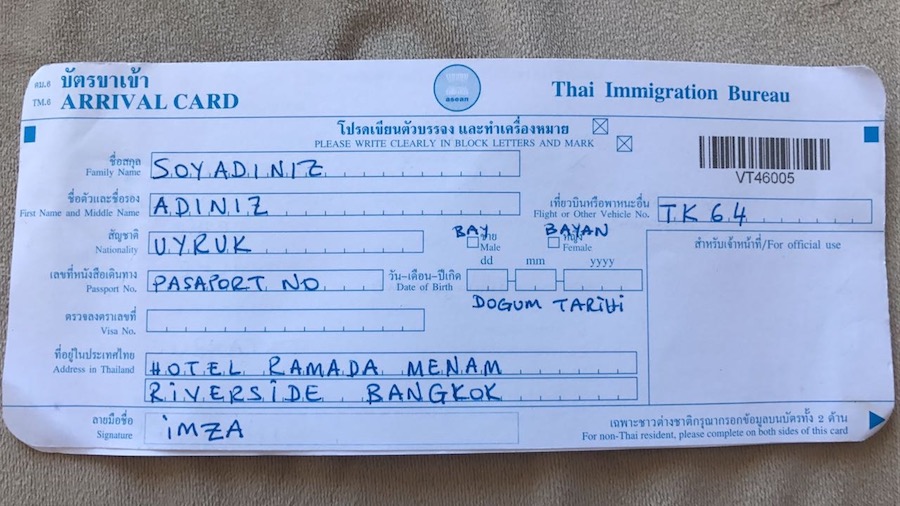 ตม.6 บัตรขาเข้า
TM.6 ARRIVAL CARD
asean
Thai Immigration Bureau
โปรดเขียนตัวบรรจง และทำเครื่องหมาย ☒
PLEASE WRITE CLEARLY IN BLOCK LETTERS AND MARK ☒
VT46005
ชื่อสกุล
Family Name SOYADINIZ
ชื่อตัวและชื่อรอง
First Name and Middle Name ADINIZ
เที่ยวบินหรือพาหนะอื่น
Flight or Other Vehicle No. TK64
สัญชาติ
Nationality UYRUK
BAY ชาย
Male
BAYAN หญิง
Female
สำหรับเจ้าหน้าที่/For official use
เลขที่หนังสือเดินทาง
Passport No. PASAPORT NO
วัน-เดือน-ปีเกิด
Date of Birth
dd mm yyyy
DOGUM TARIHI
ตรวจลงตราเลขที่
Visa No.
ที่อยู่ในประเทศไทย
Address in Thailand
HOTEL RAMADA MENAM
RIVERSIDE BANGKOK
ลายมือชื่อ
Signature iMZA
เฉพาะชาวต่างชาติกรุณากรอกข้อมูลบนบัตรทั้ง 2 ด้าน
For non-Thai resident, please complete on both sides of this card